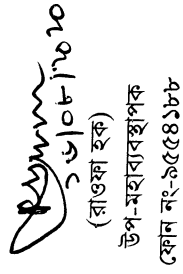 ১৮/০৮/২০২০
(রাওফা হক)
উপ-মহাব্যবস্থাপক
ফোন নং-৯৫৫৪১৮৮